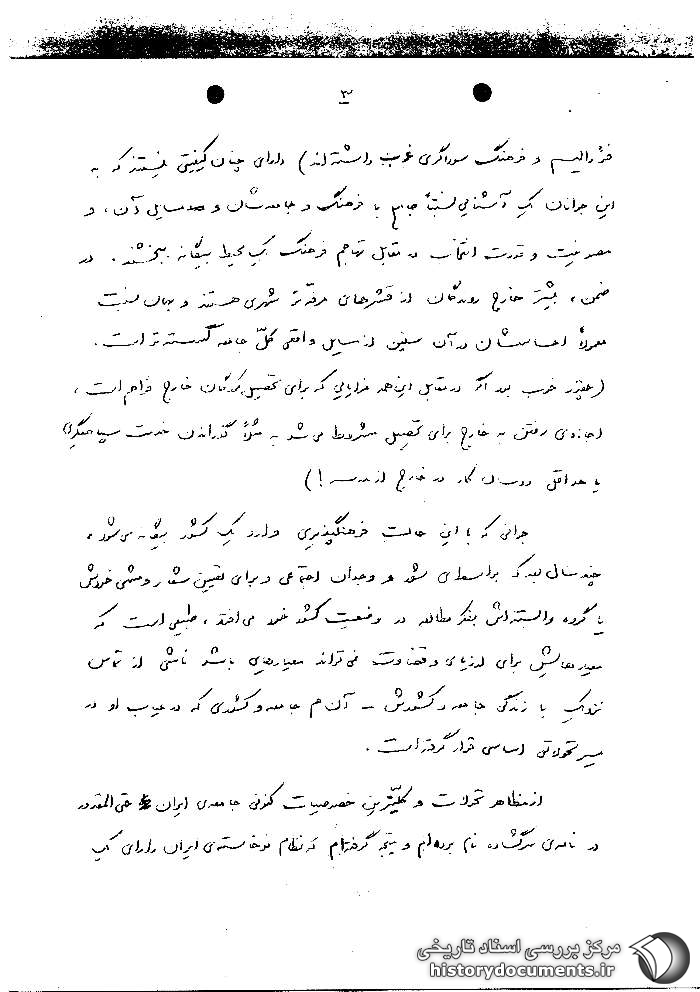 ۳
فئودالیسم و فرهنگ سوداگری غرب داشته‌اند) دارای چنان کیفیتی نیستند که به
این جوانان یک آشنایی نسبتاً جامع با فرهنگ و جامعه‌شان و مسایل آن، و
مصونیت و قدرت انتخاب در مقابل تهاجم فرهنگ یک محیط بیگانه ببخشند. در
ضمن، بیشتر خارج روندگان از قشرهای مرفّه‌تر شهری هستند و بهمان نسبت
معمولاً احساسشان در آن سنین از مسایل واقعی کلّ جامعه گسسته‌تر است.
(چقدر خوب بود اگر در مقابل این همه مزایایی که برای تحصیل‌کردگان خارج فراهم است،
اجازه‌ی رفتن به خارج برای تحصیل مشروط می‌شد به مثلاً گذراندن خدمت سپاهیگری
یا حداقل دو سال کار در خارج از مدرسه!)
جوانی که با این حالت فرهنگپذیری وارد یک کشور بیگانه می‌شود،
چند سال بعد که بواسطه‌ی شعور و وجدان اجتماعی و برای تعیین شعار و مشی خودش
یا گروه وابسته‌اش بفکر مطالعه در وضعیت کشور خود می‌افتد، طبیعی است که
معیارهایش برای ارزیابی و قضاوت نمی‌تواند معیارهای باشد ناشی از تماس
نزدیک با زندگی جامعه و کشورش – آن هم جامعه و کشوری که در غیاب او در
مسیر تحولاتی اساسی قرار گرفته است.
از مظاهر تحولات و کلی‌ترین خصوصیات کنونی جامعه‌ی ایران حتی‌المقدور
در نامه‌ی سرگشاده نام برده‌ام و نتیجه گرفته‌ام که نظام نوخاسته‌ی ایران را دارای یک
مرکز بررسی اسناد تاریخی
historydocuments.ir